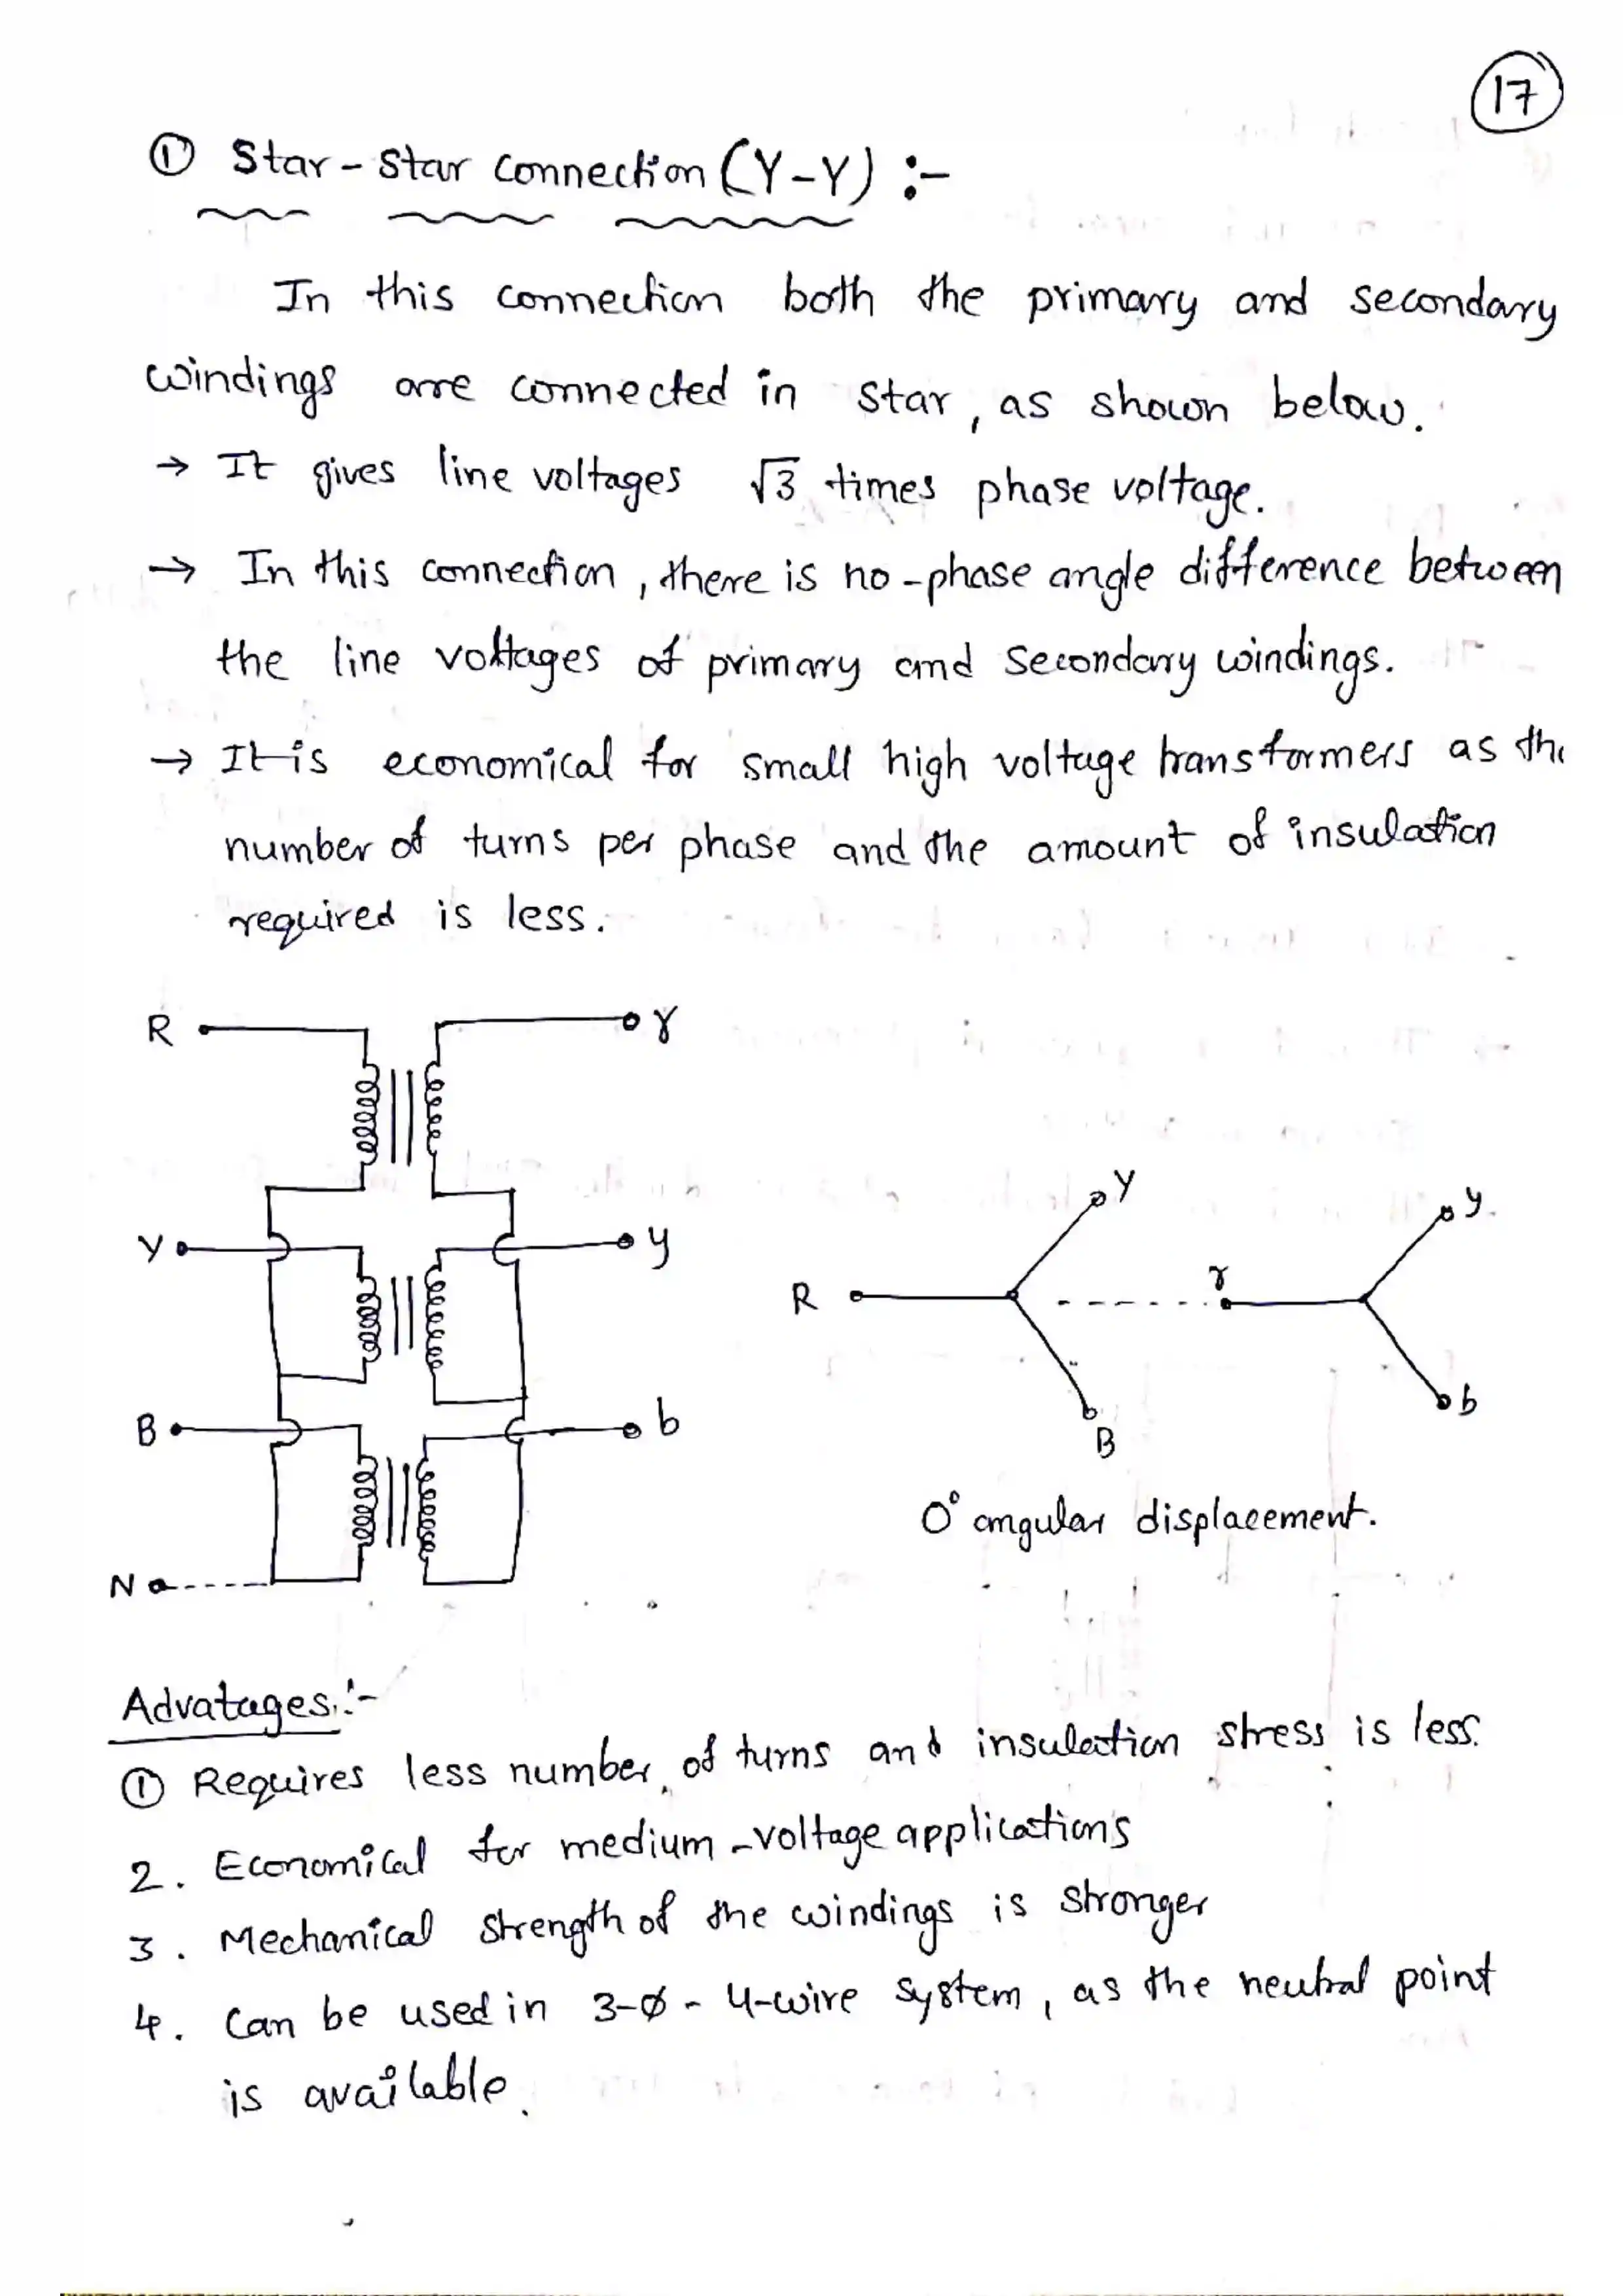 17
① Star - Star Connection (Y-Y) :-
In this connection both the primary and secondary
windings are connected in star, as shown below.
→ It gives line voltages √3 times phase voltage.
→ In this connection, there is no-phase angle difference between
the line voltages of primary and secondary windings.
→ It is economical for small high voltage transformers as the
number of turns per phase and the amount of insulation
required is less.
R r
Y y
B b
N
Y y
R r
B b
0° angular displacement.
Advatages:-
① Requires less number of turns and insulation stress is less.
2. Economical for medium-voltage applications
3. Mechanical strength of the windings is stronger
4. Can be used in 3-Ø - 4-wire system, as the neutral point
is available.